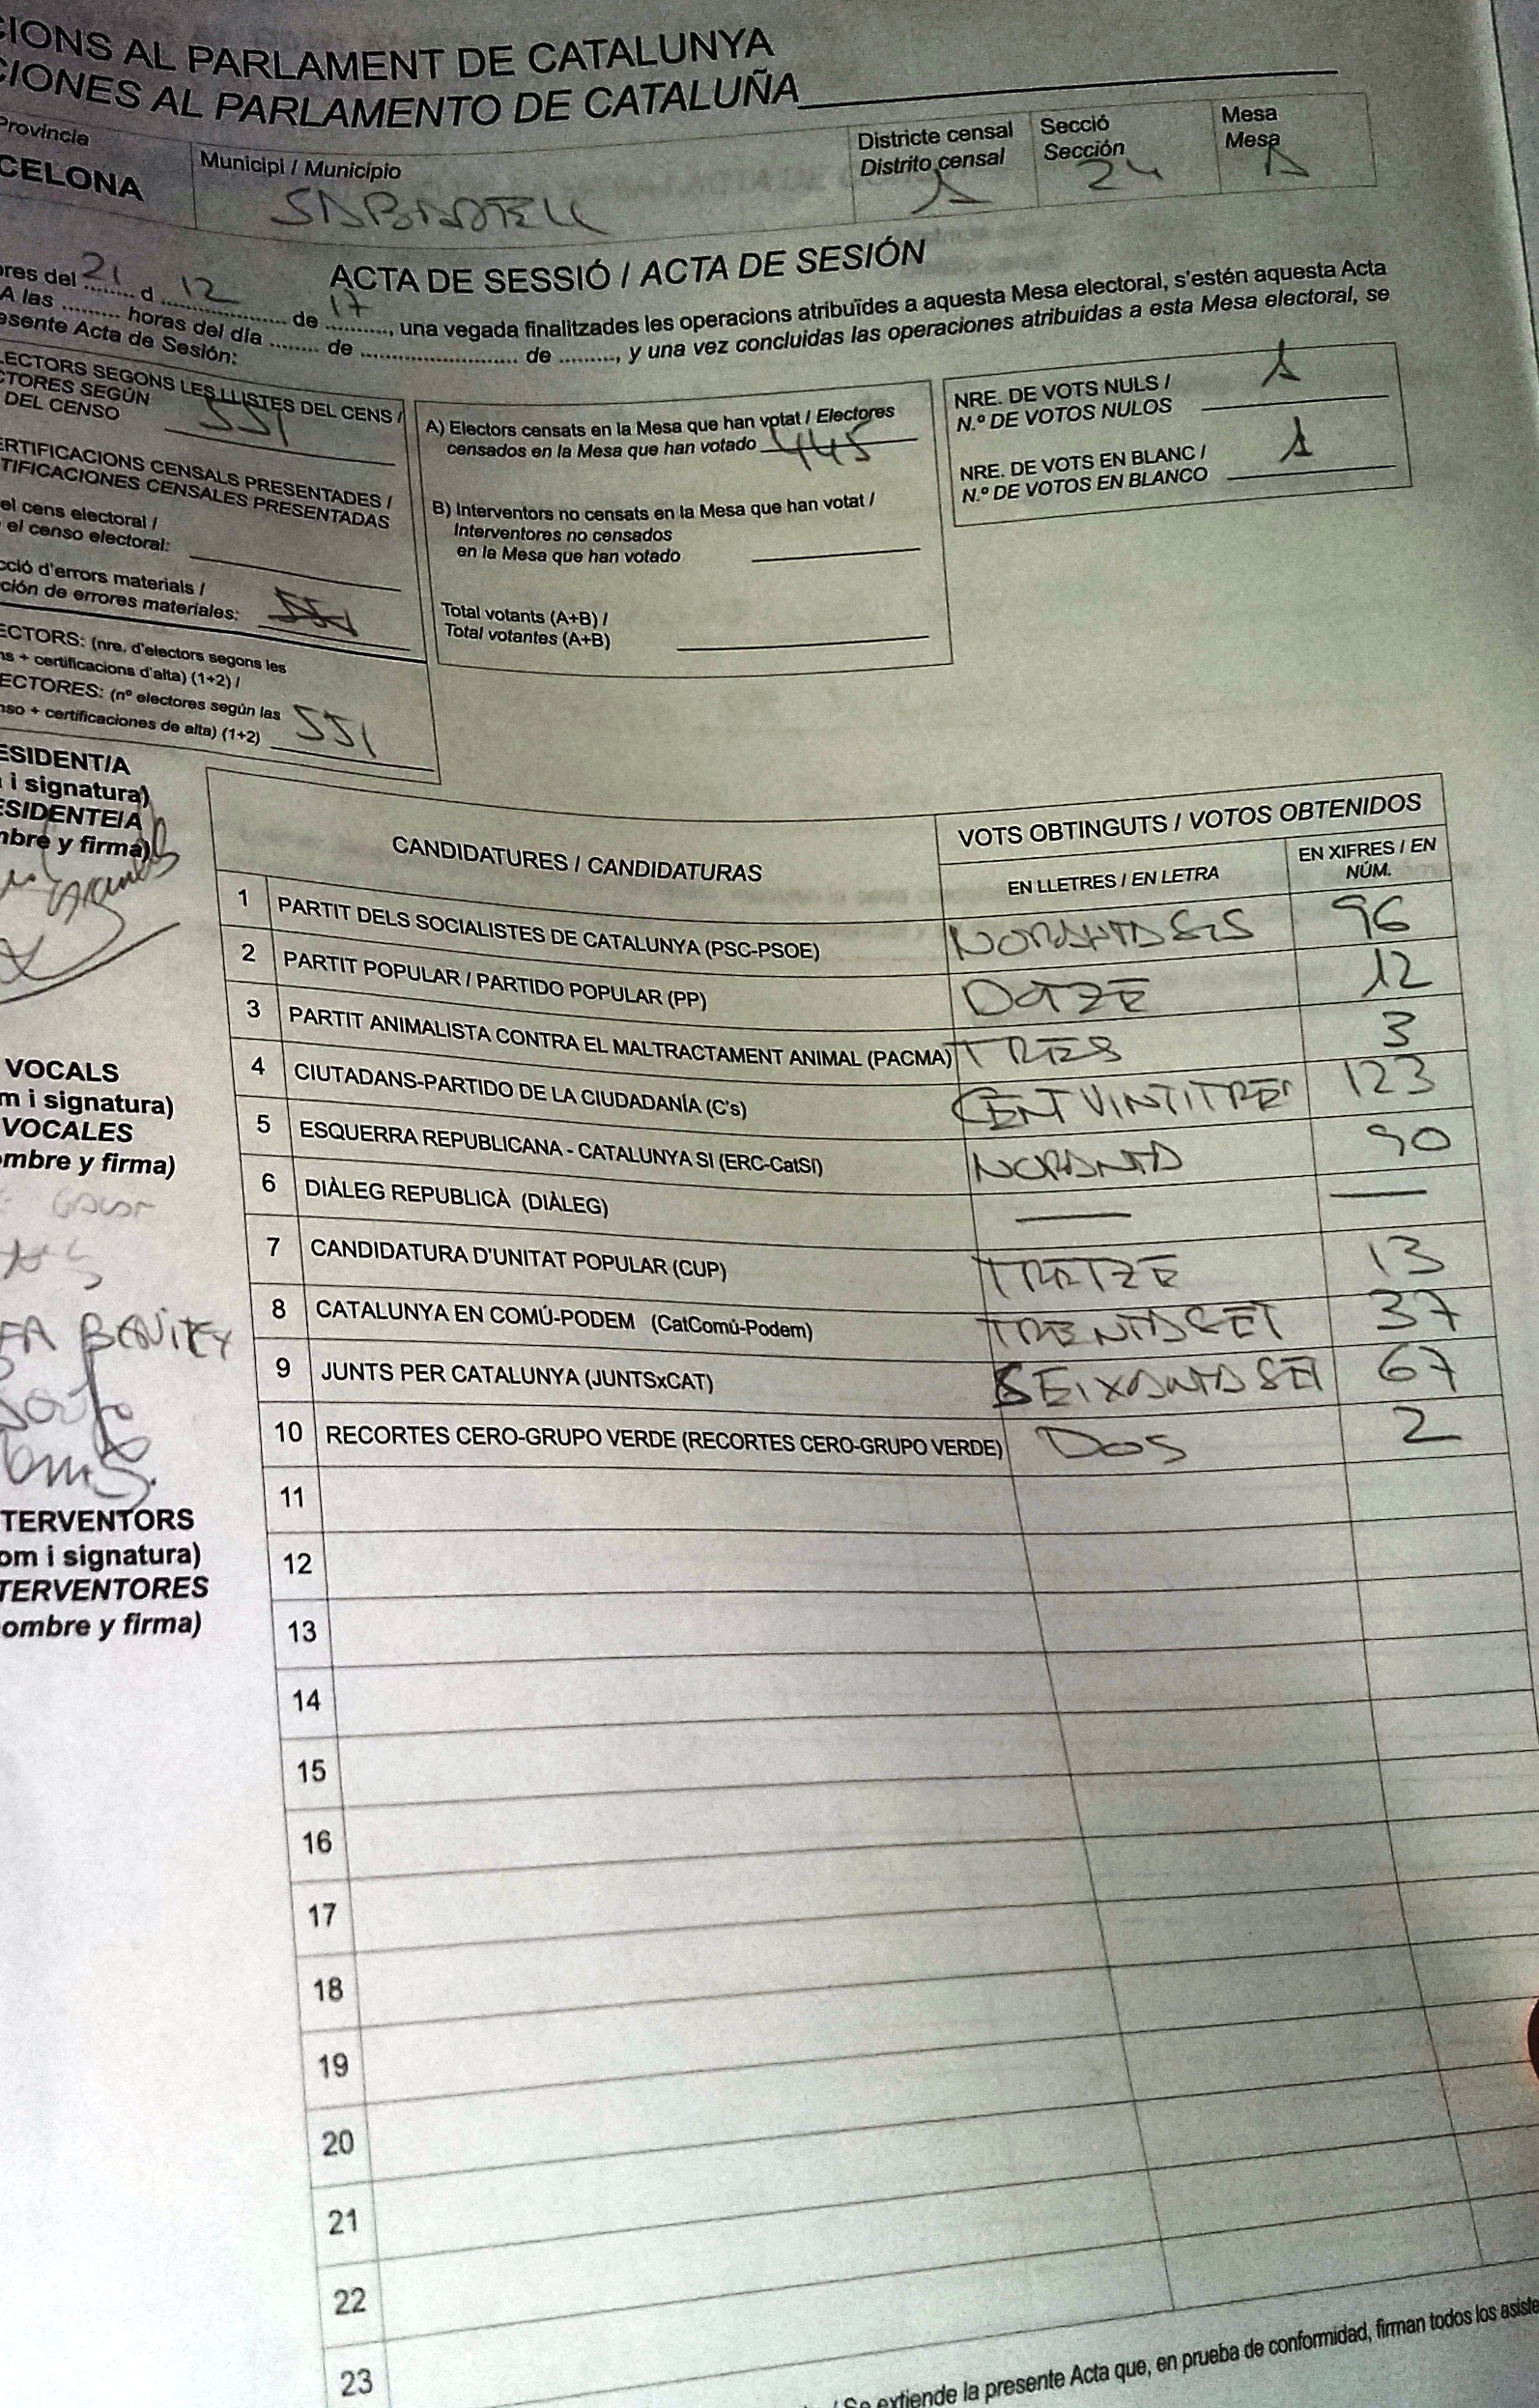 CIONS AL PARLAMENT DE CATALUNYA
CIONES AL PARLAMENTO DE CATALUÑA
Provincia
CELONA
Municipi / Municipio
SABADELL
Districte censal
Distrito censal
1
Secció
Sección
24
Mesa
Mesa
A
ACTA DE SESSIÓ / ACTA DE SESIÓN
ores del 21 d 12 de 17, una vegada finalitzades les operacions atribuïdes a aquesta Mesa electoral, s'estén aquesta Acta
A las ......... horas del día ........ de ........................ de ........., y una vez concluidas las operaciones atribuidas a esta Mesa electoral, se
esente Acta de Sesión:
LECTORS SEGONS LES LLISTES DEL CENS /
CTORES SEGÚN
DEL CENSO
551
ERTIFICACIONS CENSALS PRESENTADES /
TIFICACIONES CENSALES PRESENTADAS
el cens electoral /
el censo electoral:
cció d'errors materials /
ción de errores materiales: 551
ECTORS: (nre. d'electors segons les
ns + certificacions d'alta) (1+2) /
ECTORES: (nº electores según las
nso + certificaciones de alta) (1+2) 551
A) Electors censats en la Mesa que han votat / Electores
censados en la Mesa que han votado 445
B) Interventors no censats en la Mesa que han votat /
Interventores no censados
en la Mesa que han votado
Total votants (A+B) /
Total votantes (A+B)
NRE. DE VOTS NULS /
N.º DE VOTOS NULOS
1
NRE. DE VOTS EN BLANC /
N.º DE VOTOS EN BLANCO
1
ESIDENT/A
i signatura)
ESIDENTE/A
mbre y firma)
VOCALS
m i signatura)
VOCALES
ombre y firma)
BENITEZ
TERVENTORS
om i signatura)
TERVENTORES
ombre y firma)
CANDIDATURES / CANDIDATURAS
VOTS OBTINGUTS / VOTOS OBTENIDOS
EN LLETRES / EN LETRA
EN XIFRES / EN
NÚM.
1 PARTIT DELS SOCIALISTES DE CATALUNYA (PSC-PSOE) NORANTA SIS 96
2 PARTIT POPULAR / PARTIDO POPULAR (PP) DOTZE 12
3 PARTIT ANIMALISTA CONTRA EL MALTRACTAMENT ANIMAL (PACMA) TRES 3
4 CIUTADANS-PARTIDO DE LA CIUDADANÍA (C's) CENT VINTITRES 123
5 ESQUERRA REPUBLICANA - CATALUNYA SI (ERC-CatSI) NORANTA 90
6 DIÀLEG REPUBLICÀ (DIÀLEG) — —
7 CANDIDATURA D'UNITAT POPULAR (CUP) TRETZE 13
8 CATALUNYA EN COMÚ-PODEM (CatComú-Podem) TRENTA SET 37
9 JUNTS PER CATALUNYA (JUNTSxCAT) SEIXANTA SET 67
10 RECORTES CERO-GRUPO VERDE (RECORTES CERO-GRUPO VERDE) DOS 2
11
12
13
14
15
16
17
18
19
20
21
22
23
/ Se extiende la presente Acta que, en prueba de conformidad, firman todos los asiste